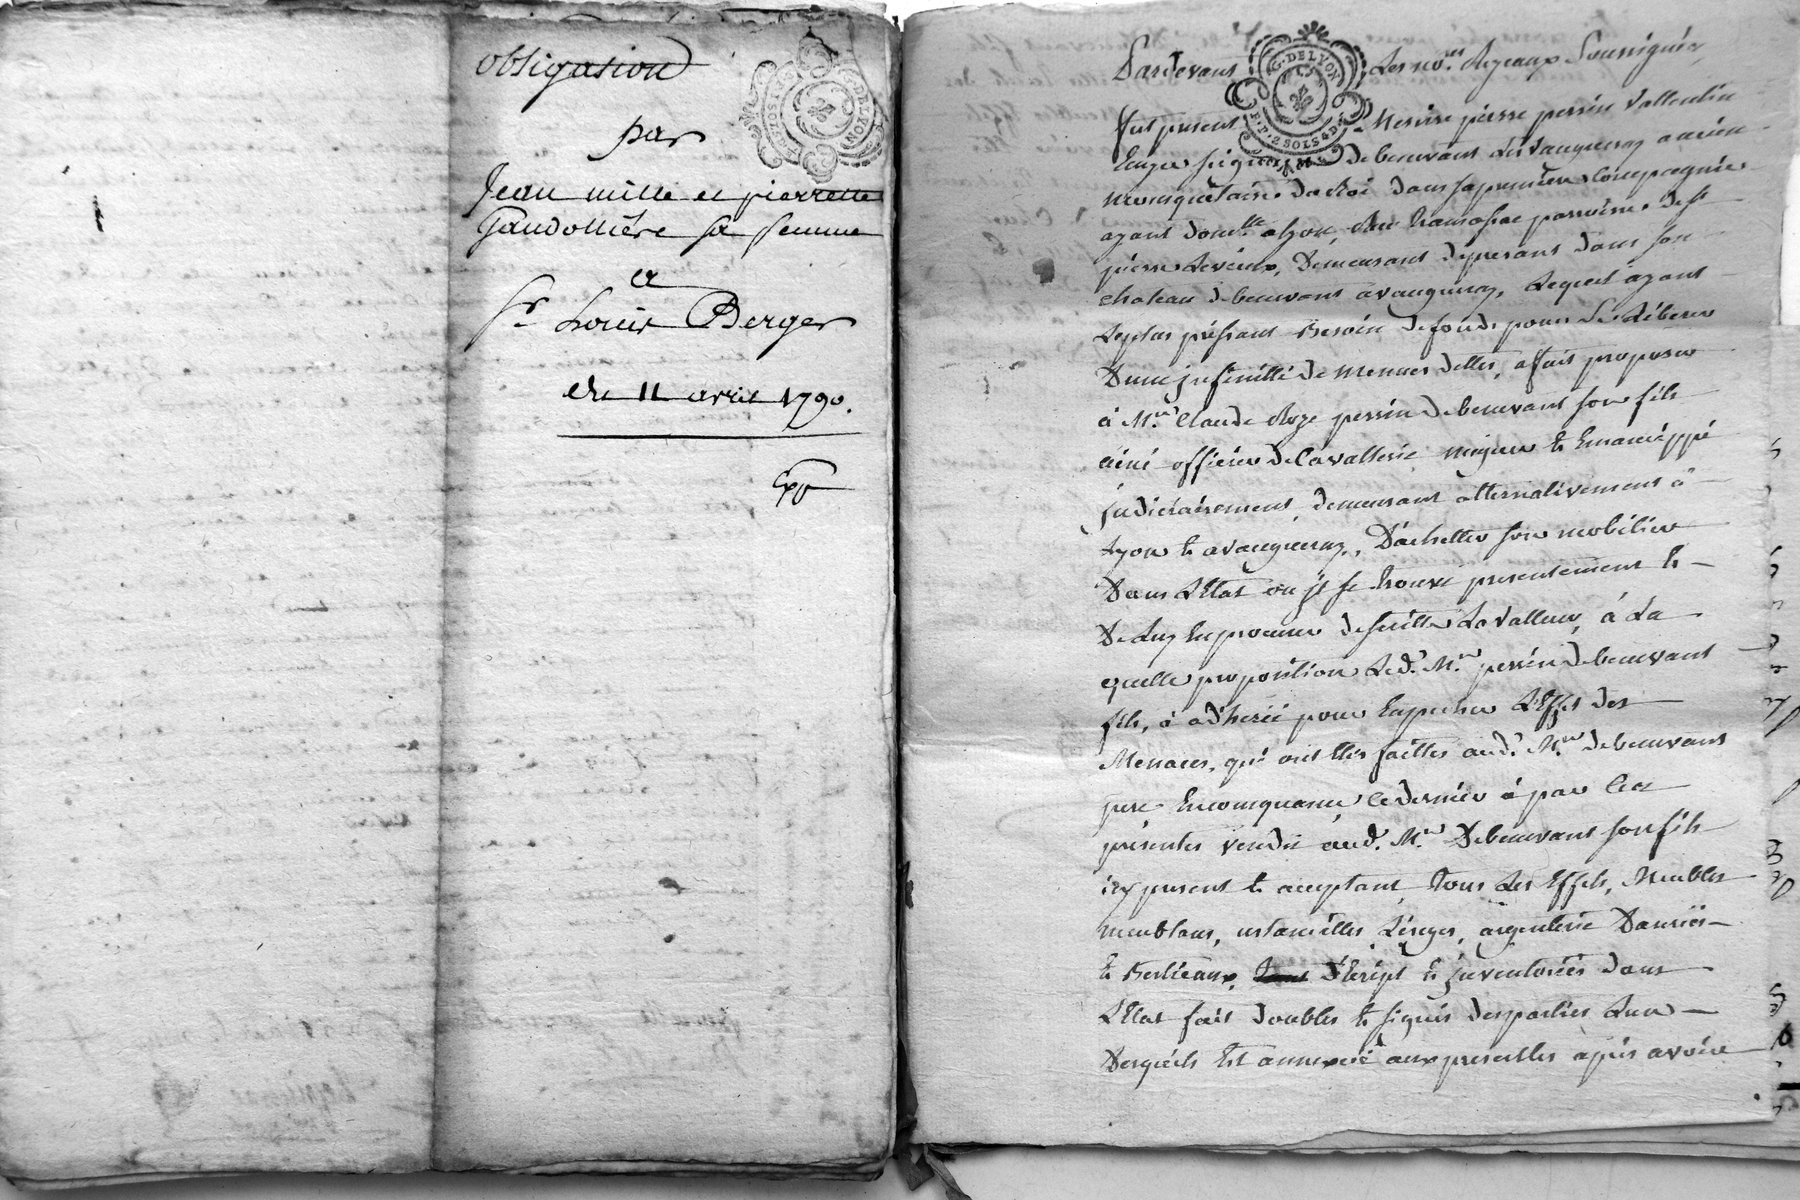 obligation
par
Jean mille et pierrette
Gaudollière sa femme
a
Sr Louis Berger
du 11 avril 1790.
Exp
G. DE LYON
Pardevant Les nores. Royaux Soussignés
G. DE LYON
F.P. 2 SOLS 4 D.
fut present Messire pierre perrin Vallentin
Ecuyer seigneur de benevant Les Vaugneray ancien
mousquetaire du Roi dans sa premiere Compagnie
ayant domlle a lyon, Rue paroisse de st
pierre Levieux, Demeurant depresant dans son
chateau de benevant a vaugneray, Lequel ayant
Leplus pressant Besoin de fonds pour se Liberer
D'une jnfinitté de Menues dettes, a fait proposer
à Mre. Claude Roze perrin de benevant son fils
ainé officier de Cavallerie, mineur & Emancippé
judiciairement, demeurant alternativement à
Lyon & a vaugneray, D'achetter son mobilier
Dans L'Etat ou jl se trouve presentement &
De Luy En procurer de suitte La Valleur, á La
quelle proposition Led. Mre. perrin de benevant
fils, à adheré pour Empecher L'Effet des
Menaces, qui ont Etés faittes aud. Mre. de benevant
pere, En consequence, Ce dernier à par Ces
présentes vendû aud. Mre. De benevant son fils
icy present & acceptant, Tous Les Effets, Meubles
meublans, ustancilles Linges, argenterie Danrées
& Bestieaux, d'écript & jnventoriés dans
L'Etat fait doubles & signés des parties L'un
Desquels Est annexé aux presentes après avoir